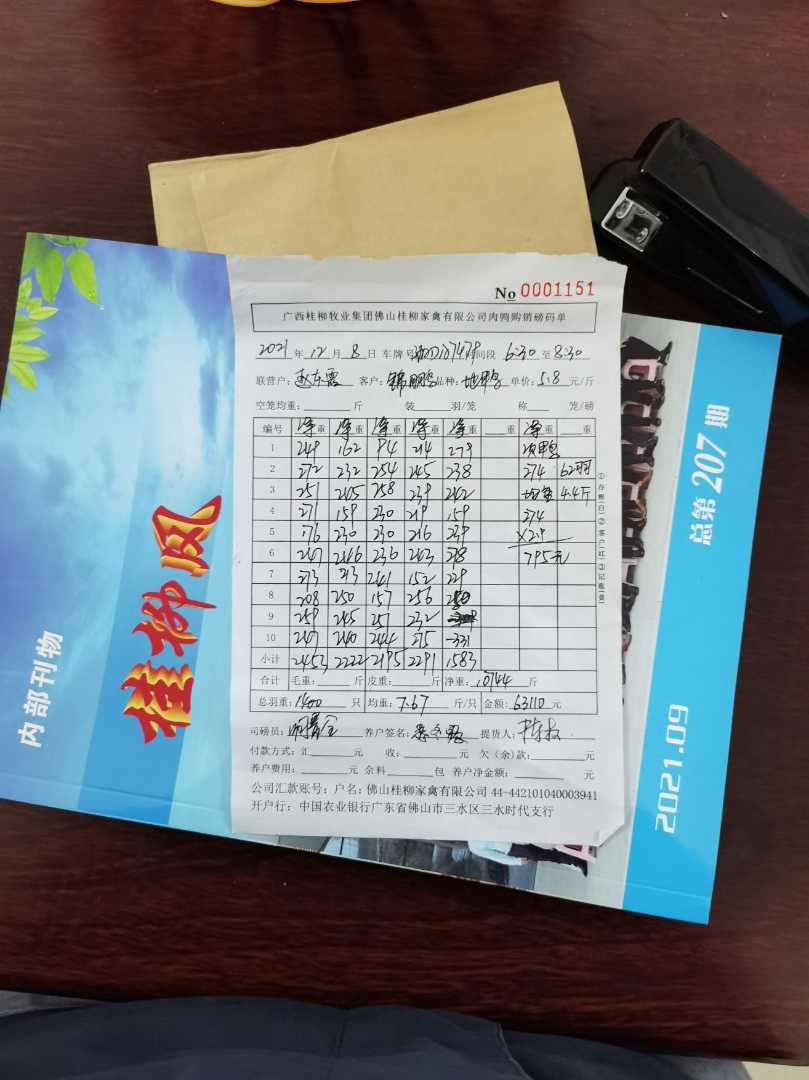 No 0001151
广西桂柳牧业集团佛山桂柳家禽有限公司肉鸭购销磅码单
2021 年 12 月 8 日 车牌号 时间段 6:30 至 8:30
联营户: 客户: 锦鹏 品种: 地鸭 单价: 5.8 元/斤
空笼均重: 斤 装 羽/笼 称 笼/磅
编号 净重 净重 净重 净重 净重 重 净重 重
1 249 162 94 214 279 次鸭
2 272 232 254 245 238 274 62羽
3 251 245 258 239 242 均重 4.4斤
4 271 159 230 219 159 274
5 176 230 230 216 239 ×2.9
6 247 246 236 243 278 795元
7 273 213 241 152 229
8 208 250 157 256
9 259 245 257 232
10 247 240 244 275 -331
小计 2453 2222 2195 2291 1583
合计 毛重: 斤 皮重: 斤 净重: 10744 斤
总羽重: 1400 只 均重: 7.67 斤/只 金额: 63110 元
司磅员: 养户签名: 提货人:
付款方式: 汇 元 收: 元 欠(余)款: 元
养户费用: 元 余料 包 养户净金额: 元
公司汇款账号: 户名: 佛山桂柳家禽有限公司 44-442101040003941
开户行: 中国农业银行广东省佛山市三水区三水时代支行
桂柳风
内部刊物
总第 207 期
2021.09